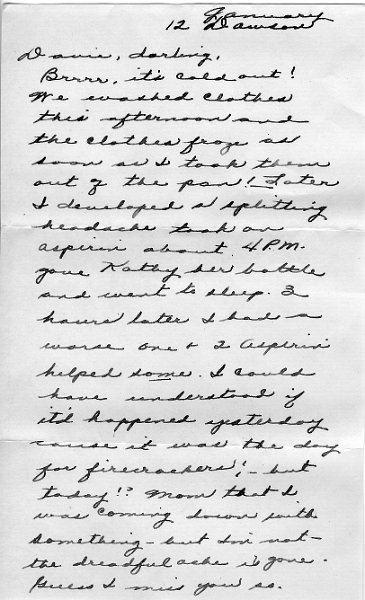 January
12 Dawson
Davie, darling,
Brrrr, it's cold out!
We washed clothes
this afternoon and
the clothes froze as
soon as I took them
out of the pan! Later
I developed a splitting
headache took an
aspirin about 4 P.M.
gave Kathy her bottle
and went to sleep. 3
hours later I had a
worse one + 2 aspirin
helped some. I could
have understood if
it'd happened yesterday
cause it was the day
for firecrackers! - but
today!? Mom that I
was coming down with
something - but I'm not -
the dreadful ache is gone.
Guess I miss you so.